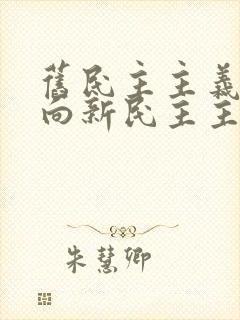 舊民主主義
向新民主主
朱慧卿